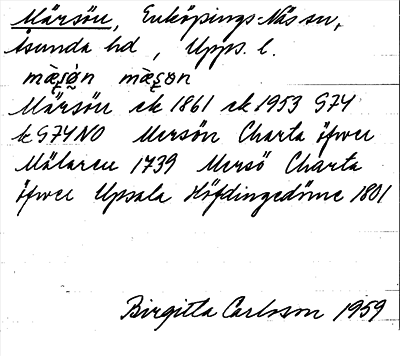 Märsön, Enköpings-Näs sn,
Åsunda hd, Upps. l.
mæ̀ʂɑ̀n mæ̀ʂøn
Märsön ek 1861 ek 1953 G74
k G74NO Mersön Charta öfwer
Mälaren 1739 Mersö Charta
öfwer Upsala Höfdingedöme 1801
Birgitta Carlsson 1959